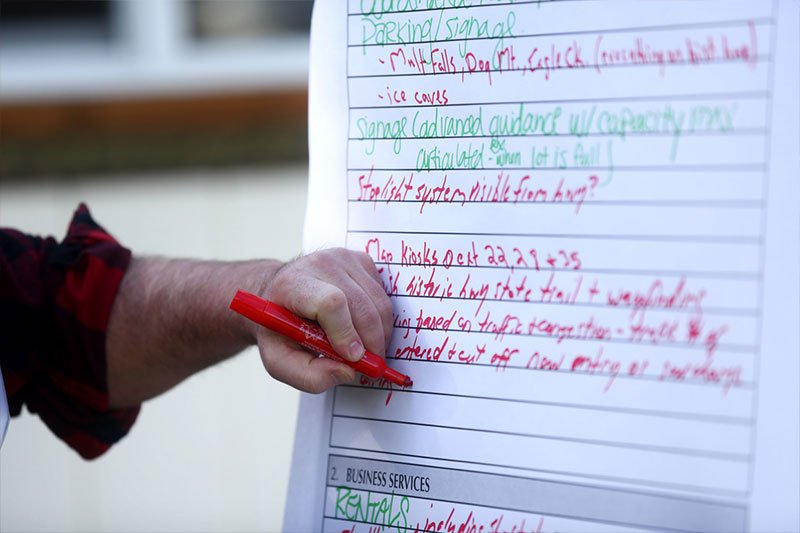 Parking/signage
- Mult Falls, Dog Mt., Eagle Ck. (everything on hist hwy)
- ice caves
signage (advanced guidance w/ capacity
articulated - ex when lot is full)
Stoplight system visible from hwy?
Map Kiosks @ ext 22, 28 + 35
historic hwy state trail + wayfinding
based on traffic + congestion - track # of
entered + cut off new entry or surcharge
2. BUSINESS SERVICES
RENTALS, including